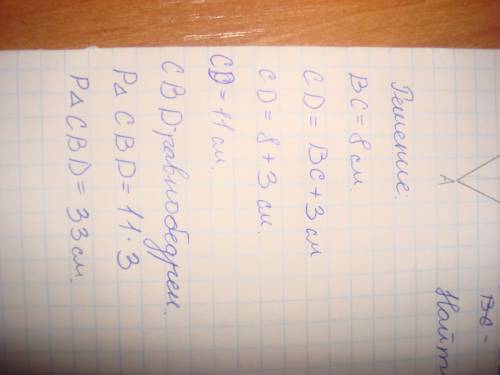 BC -
Найти
A
Решение:
BC = 8 см.
CD = BC + 3 см
CD = 8 + 3 см.
CD = 11 см.
CBD-равнобедрен.
P∆ CBD = 11 · 3
P∆ CBD = 33 см.